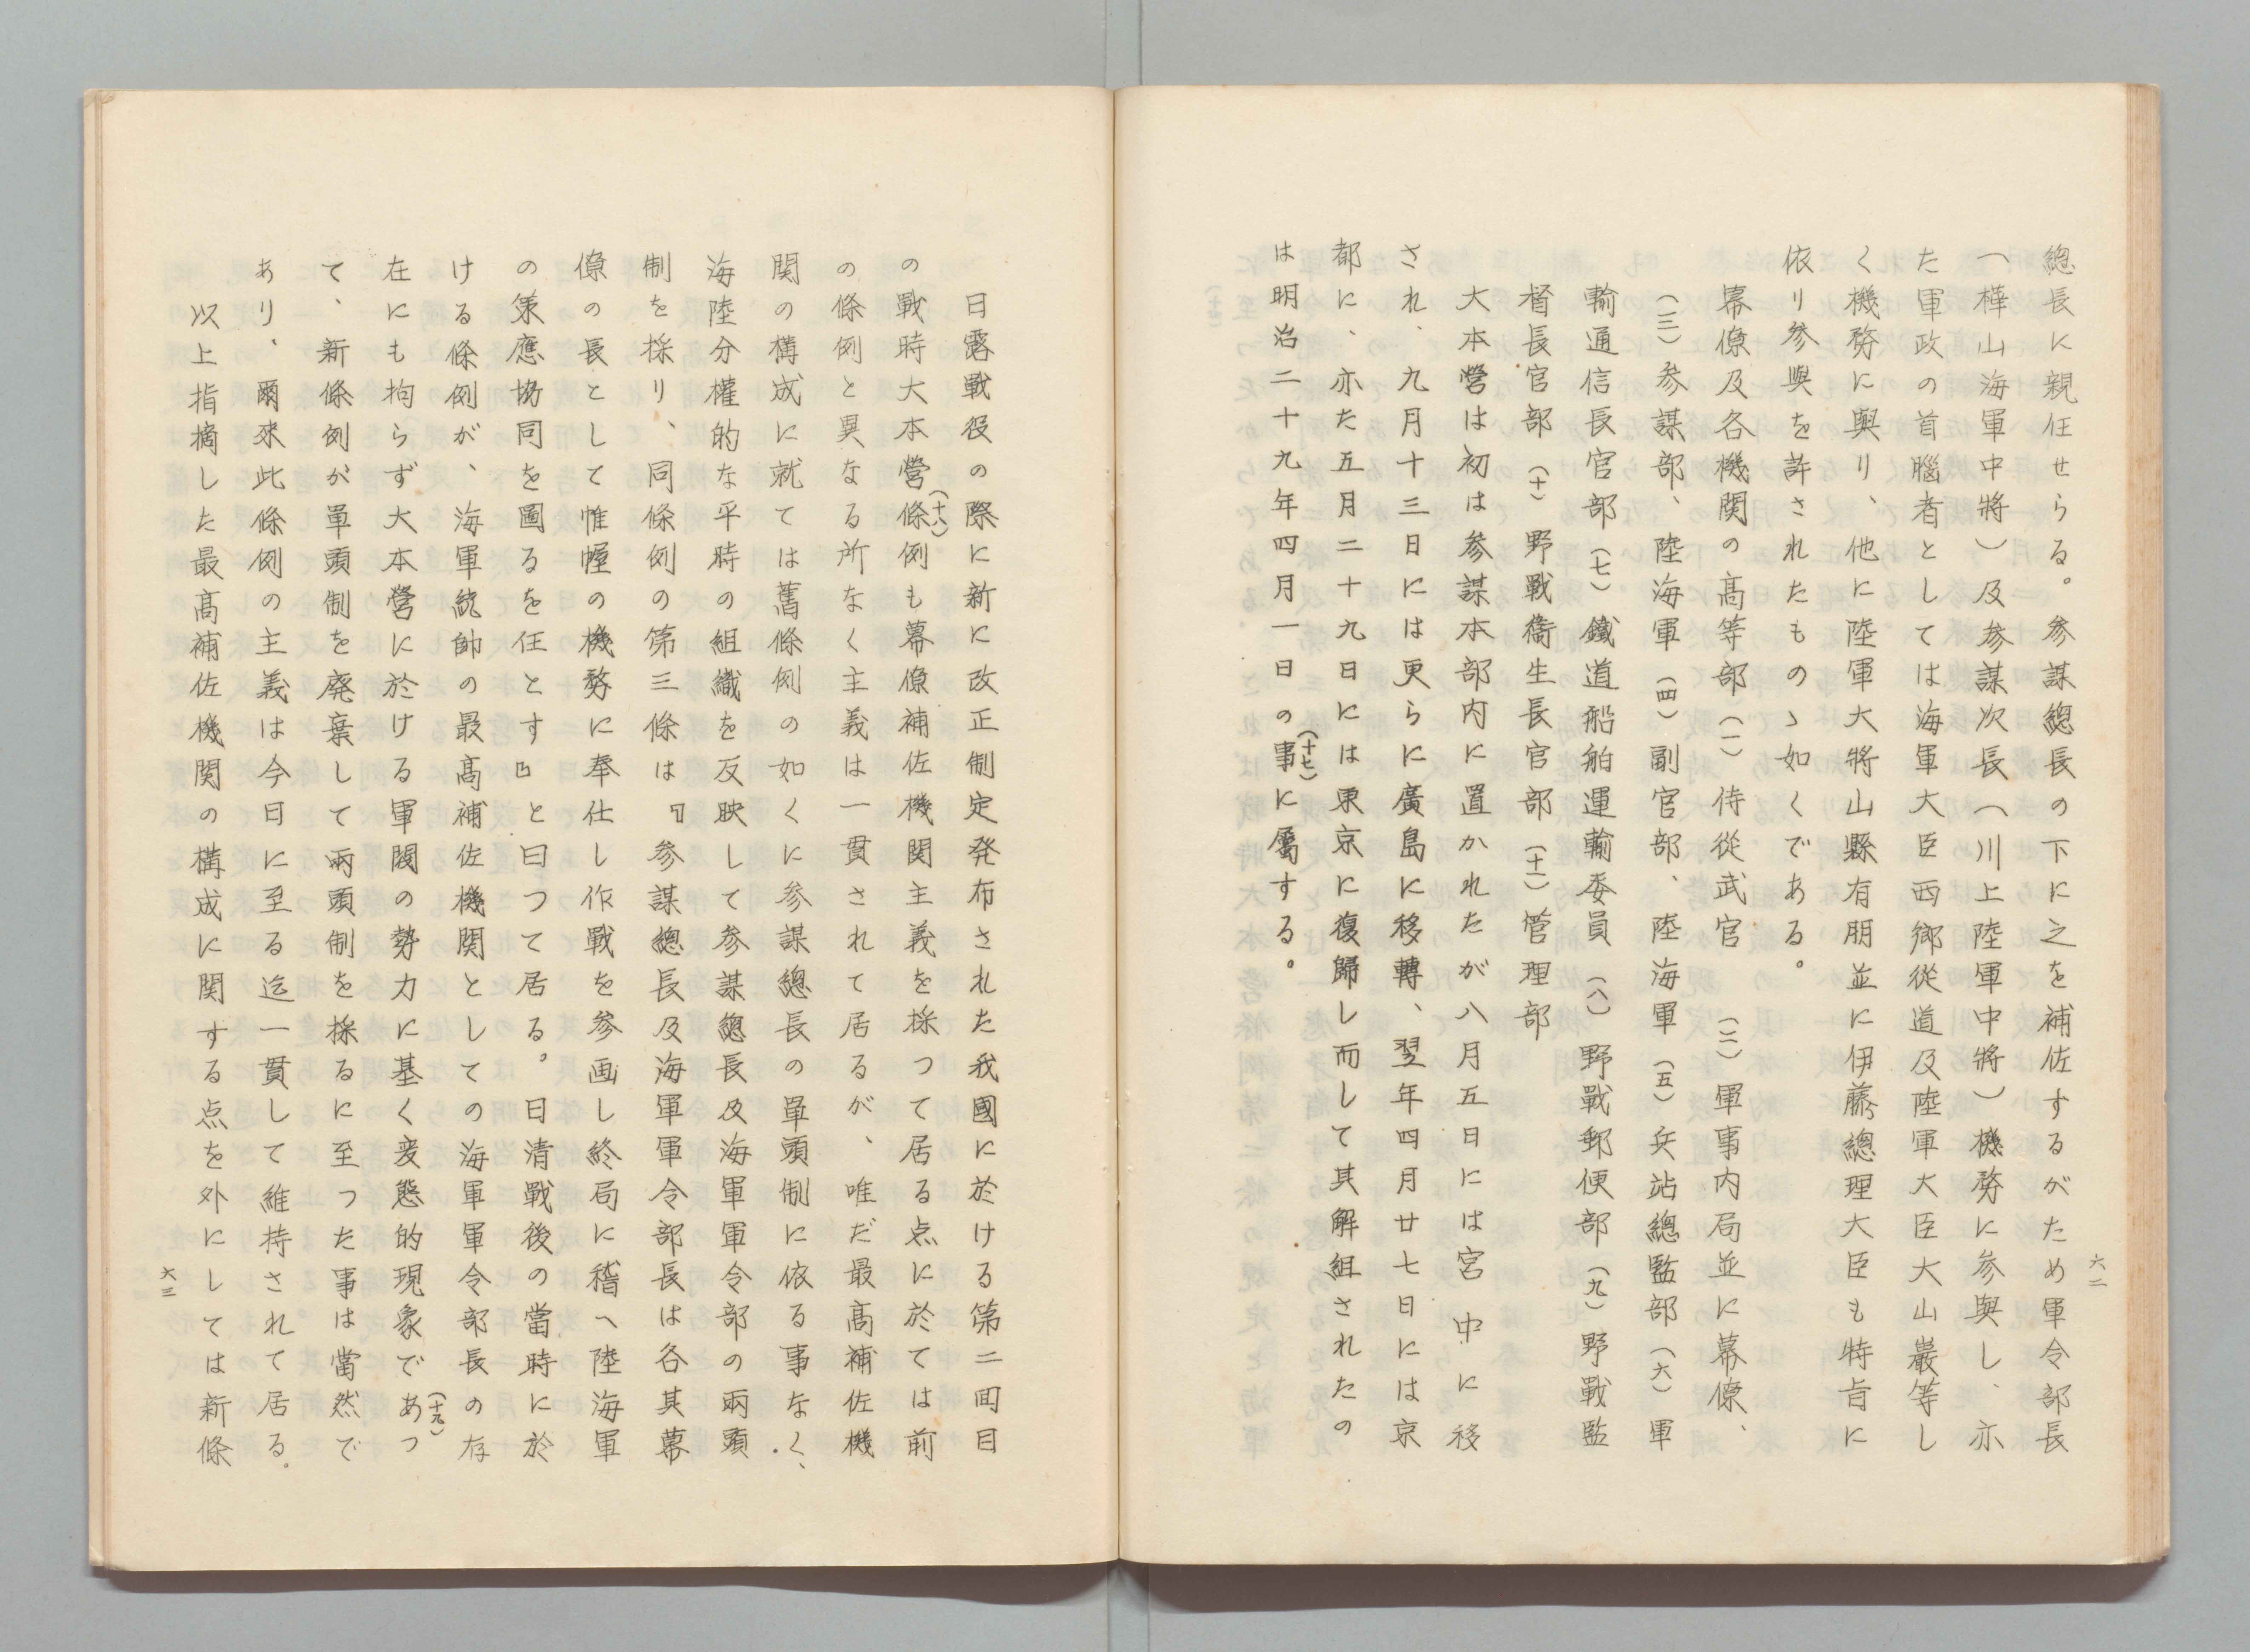 六二
總長に親任せらる。参謀總長の下に之を補佐するがため軍令部長
（樺山海軍中將）及参謀次長（川上陸軍中將）機務に参與し、亦
た軍政の首腦者としては海軍大臣西郷從道及陸軍大臣大山巖等し
く機務に與り、他に陸軍大將山縣有朋並に伊藤總理大臣も特旨に
依り参與を許されたものゝ如くである。
幕僚及各機関の高等部（一）侍從武官（二）軍事内局並に幕僚、
（三）参謀部、陸海軍（四）副官部、陸海軍（五）兵站總監部（六）軍
輸通信長官部（七）鐵道船舶運輸委員（八）野戰郵便部（九）野戰監
督長官部（十）野戰衞生長官部（十一）管理部
大本營は初は参謀本部内に置かれたが八月五日には宮中に移
され、九月十三日には更らに廣島に移轉、翌年四月廿七日には京
都に、亦た五月二十九日には東京に復歸し而して其解組されたの
は明治二十九年四月一日の事（十七）に屬する。
日露戰役の際に新に改正制定発布された我國に於ける第二回目
の戰時大本營條例（十八）も幕僚補佐機関主義を採つて居る点に於ては前
の條例と異なる所なく主義は一貫されて居るが、唯だ最高補佐機
関の構成に就ては舊條例の如くに参謀總長の單頭制に依る事なく、
海陸分權的な平時の組織を反映して参謀總長及海軍軍令部の兩頭
制を採り、同條例の第三條は『参謀總長及海軍軍令部長は各其幕
僚の長として帷幄の機務に奉仕し作戰を参画し終局に稽へ陸海軍
の策應協同を圖るを任とす』と曰つて居る。日清戰後の當時に於
ける條例が、海軍統帥の最高補佐機関としての海軍軍令部長の存
在にも拘らず大本營に於ける軍閥の勢力に基く変態的現象であつ（十九）
て、新條例が單頭制を廃棄して兩頭制を採るに至つた事は當然で
あり、爾來此條例の主義は今日に至る迄一貫して維持されて居る。
以上指摘した最高補佐機関の構成に関する点を外にしては新條
六三